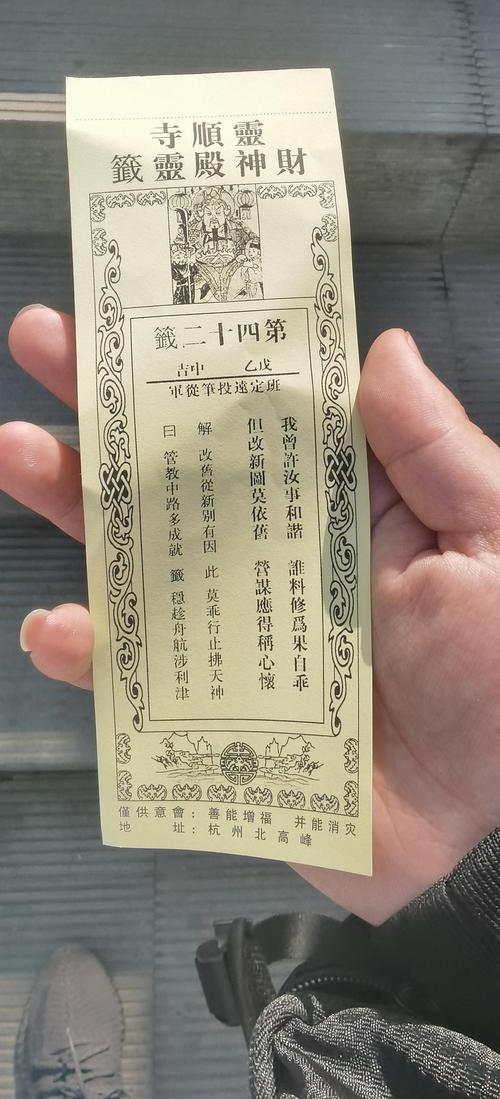 靈順寺
財神殿靈籤
第四十二籤
戊乙 中吉
班定遠投筆從軍
我曾許汝事和諧 誰料修爲果自乖
但改新圖莫依舊 營謀應得稱心懷
解 改舊從新別有因 此 莫乖行止拂天神
曰 管教中路多成就 籤 穩趁舟航涉利津
僅供意會：善能增福 并能消灾
地址：杭州北高峰